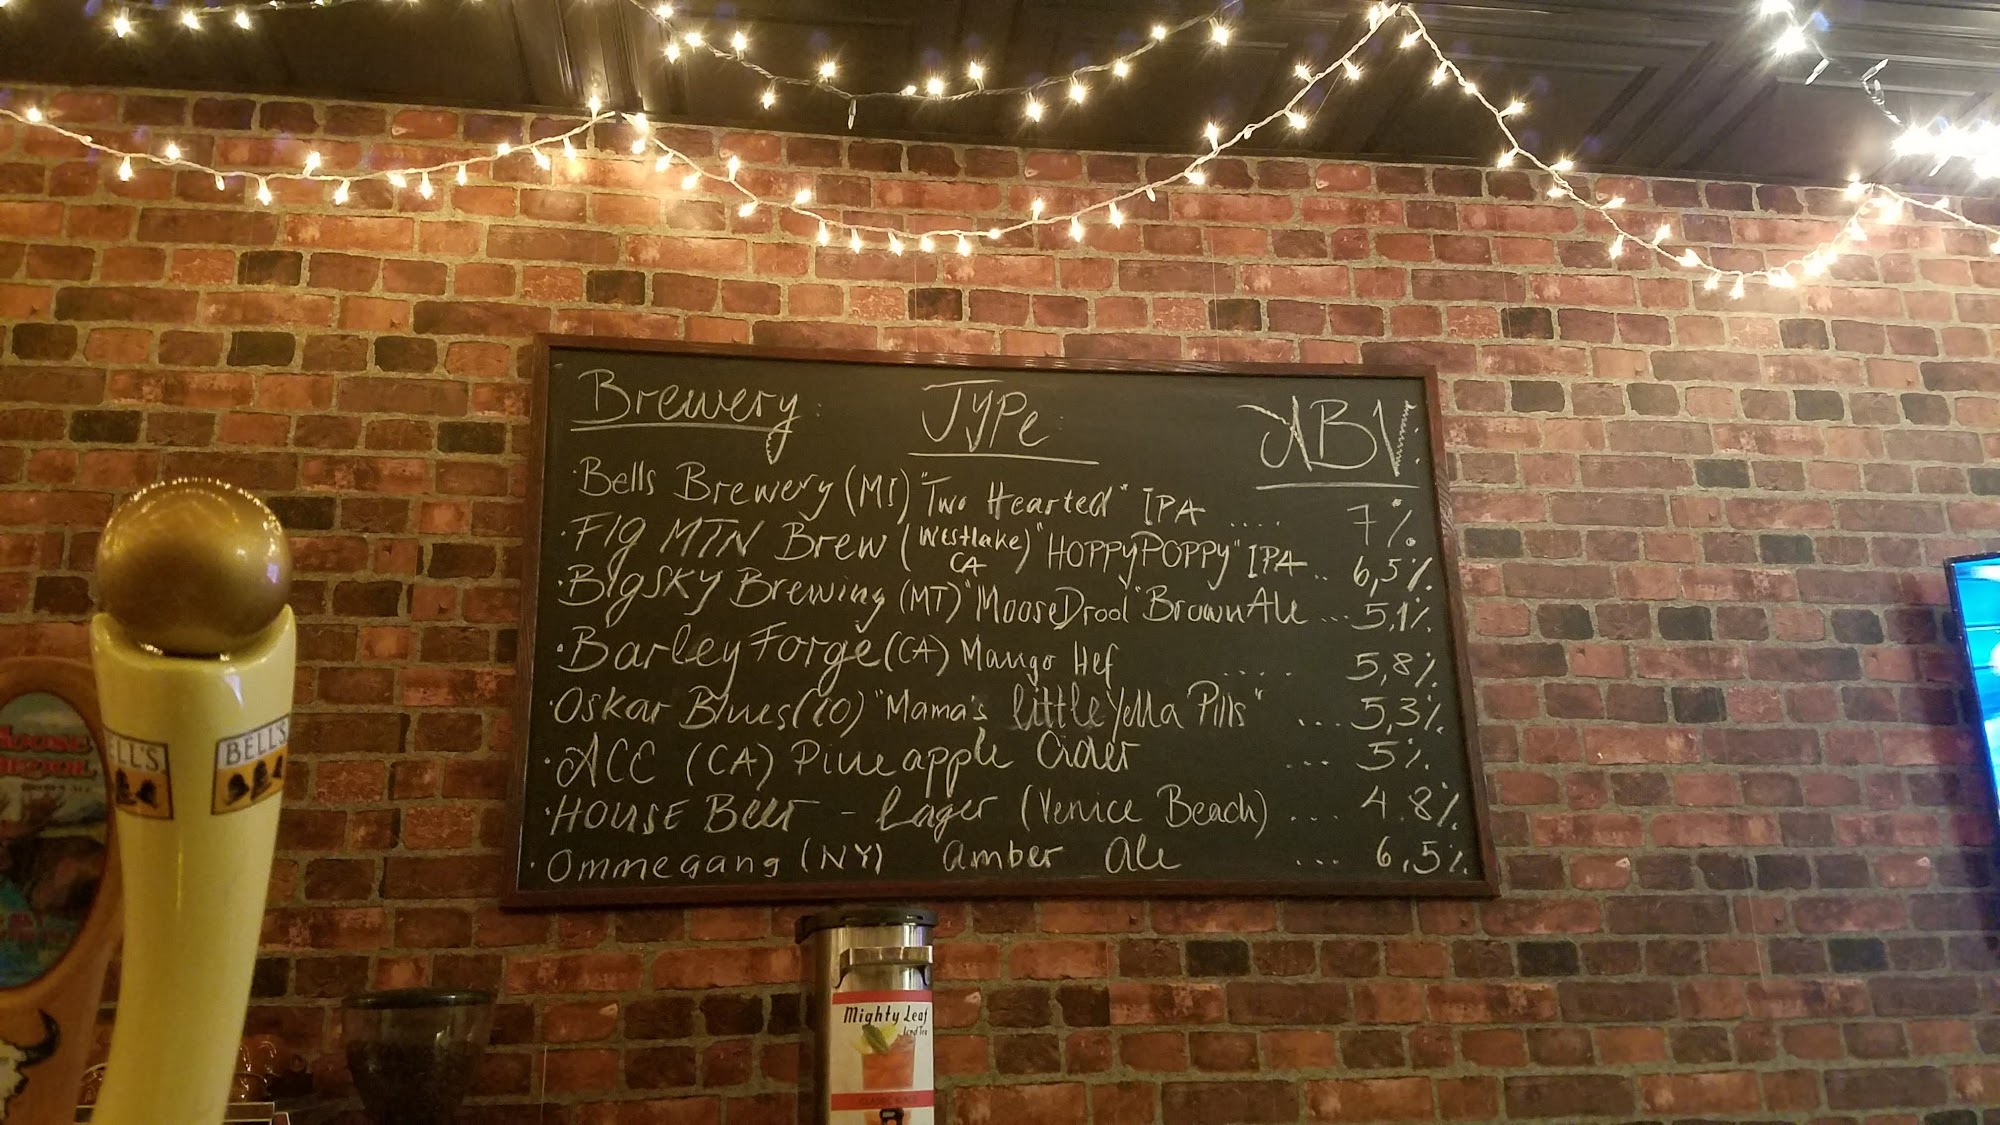 Brewery: Type: ABV:
·Bells Brewery (MI) "Two Hearted" IPA .... 7%.
·FIG MTN Brew (Westlake CA) "HOPPYPOPPY" IPA .. 6,5%
·BigSKY Brewing (MT) "MooseDrool" BrownAle ... 5,1%
·Barley Forge (CA) Mango Hef .... 5,8%
·Oskar Blues (CO) "Mama's little Yella Pills" ... 5,3%
·ACC (CA) Pineapple Cider ... 5%
·HOUSE BEER - Lager (Venice Beach) ... 4.8%
·Ommegang (NY) amber ale ... 6,5%
ELL'S
BELL'S
MOOSE
DROOL
Mighty Leaf
Iced Tea